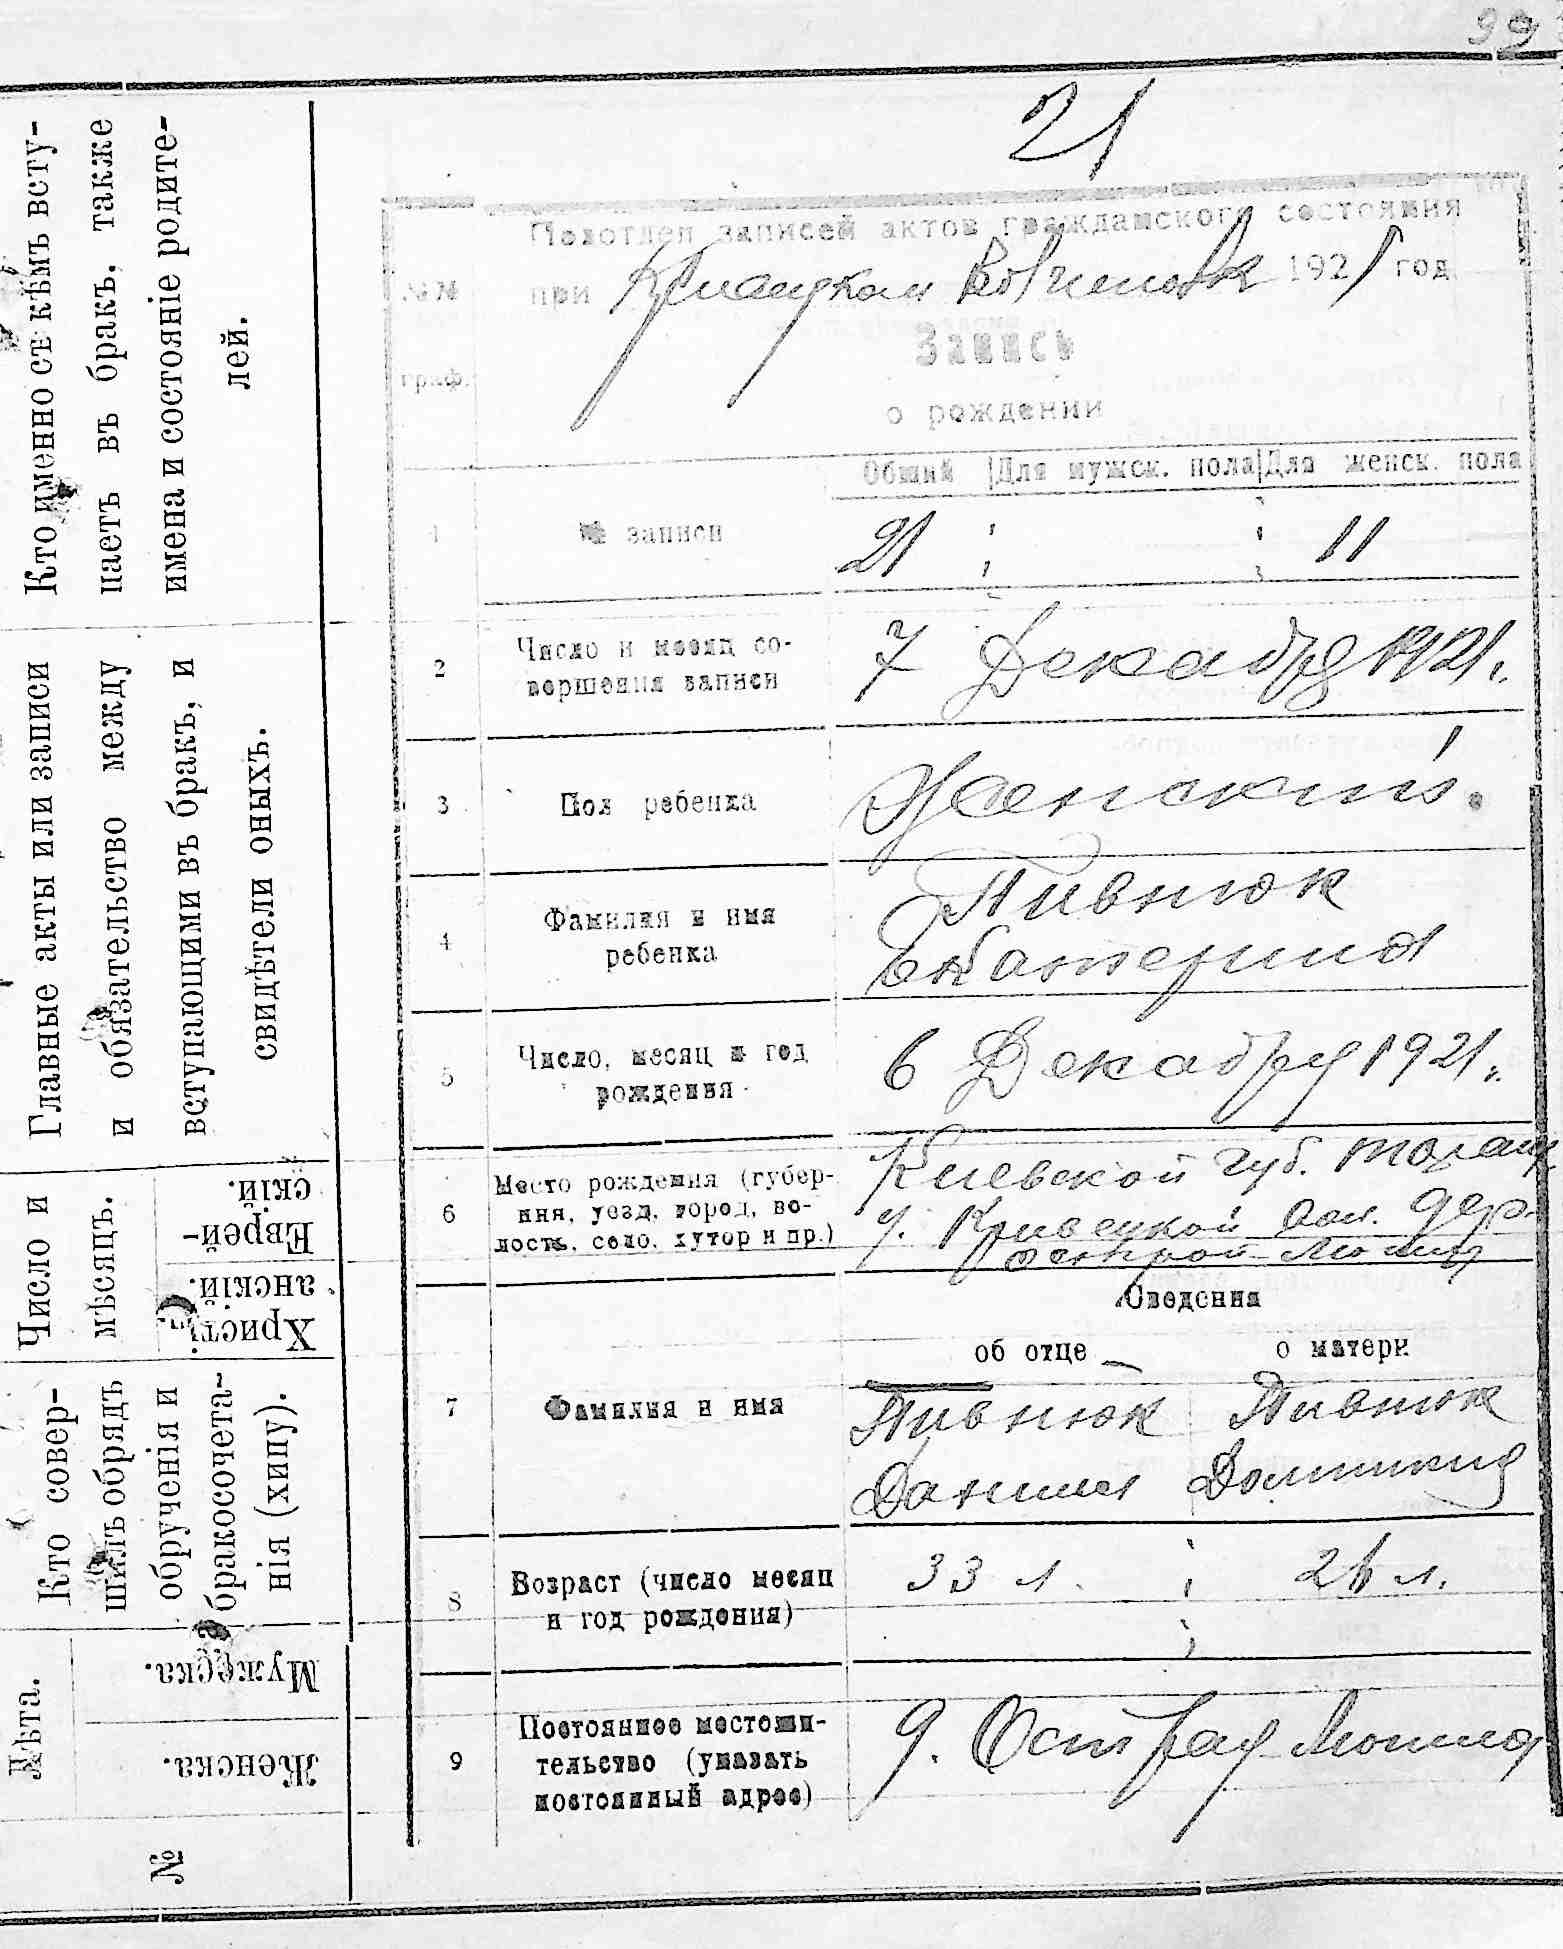 99
21
Кто именно съ кѣмъ всту-
паетъ въ бракъ, также
имена и состояніе родите-
лей.
Главные акты или записи
и обязательство между
вступающими въ бракъ, и
свидѣтели оныхъ.
Число и
мѣсяцъ.
Еврей-
скій.
Христі
анскій.
Кто совер-
шилъ обрядъ
обрученія и
бракосочета-
нія (хипу).
Лѣта.
Мужеска.
Женска.
№
Подотдел записей актов гражданского состояния
при 1921 год
№№
граф.
Запись
о рождении
Общий Для мужск. пола Для женск. пола
1 № записи 21 11
2 Число и месяц со-
вершения записи
7 Декабря 1921 г.
3 Пол ребенка Женский.
4 Фамилия и имя
ребенка
Пивнюк
Екатерина
5 Число, месяц и год
рождения
6 Декабря 1921 г.
6 Место рождения (губер-
ния, уезд, город, во-
лость, село, хутор и пр.)
Киевской губ. Таращ.
у. Кривецкой вол. дер.
Острой Могилы
Сведения
об отце о матери
7 Фамилия и имя
Пивнюк Пивнюк
Даниил Домникия
8 Возраст (число месяц
и год рождения)
33 л. 26 л.
9 Постоянное местожи-
тельство (указать
постоянный адрес)
д. Острая Могила